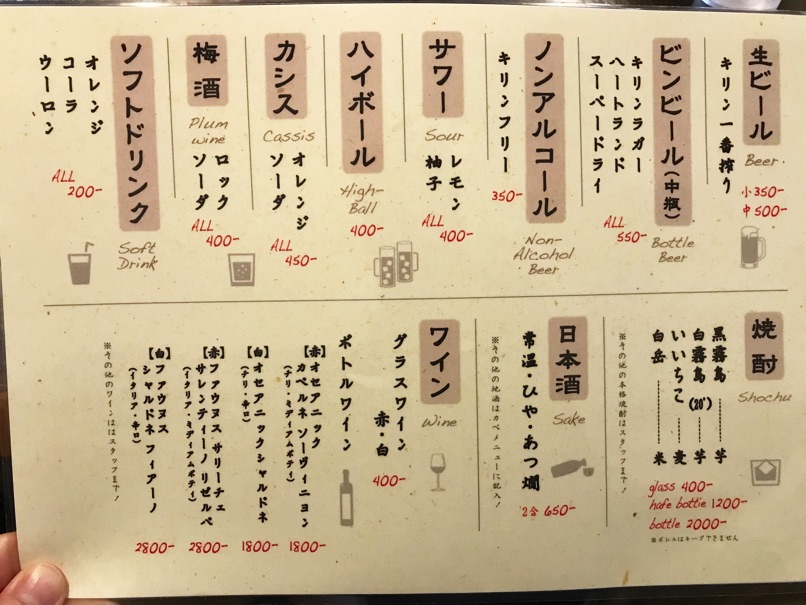 生ビール
Beer.
キリン一番搾り
小350-
中500-
ビンビール(中瓶)
Bottle
Beer
キリンラガー
ハートランド
スーパードライ
ALL
550-
ノンアルコール
Non-
Alcohol
Beer
キリンフリー
350-
サワー
Sour
レモン
柚子
ALL
400-
ハイボール
High-
Ball
400-
カシス
Cassis
オレンジ
ソーダ
ALL
450-
梅酒
Plum
wine
ロック
ソーダ
ALL
400-
ソフトドリンク
Soft
Drink
オレンジ
コーラ
ウーロン
ALL
200-
焼酎
Shochu
黒霧島………芋
白霧島(20°)……芋
いいちこ………麦
白岳………米
glass 400-
hafe bottie 1200-
bottle 2000-
※ボトルはキープできません
※その他の本格焼酎はスタッフまで!
日本酒
Sake
常温・ひや・あつ燗
2合 650-
※その他の地酒はカベメニューに記入!
ワイン
Wine
グラスワイン
赤・白
400-
ボトルワイン
【赤】オセアニック
カベルネ ソーヴィニヨン
(チリ・ミディアムボディ)
1800-
【白】オセアニックシャルドネ
(チリ・辛口)
1800-
【赤】ファウヌス サリーチェ
サレンティーノ リゼルバ
(イタリア・ミディアムボディ)
2800-
【白】ファウヌス
シャルドネ フィアーノ
(イタリア・辛口)
2800-
※その他のワインはスタッフまで!